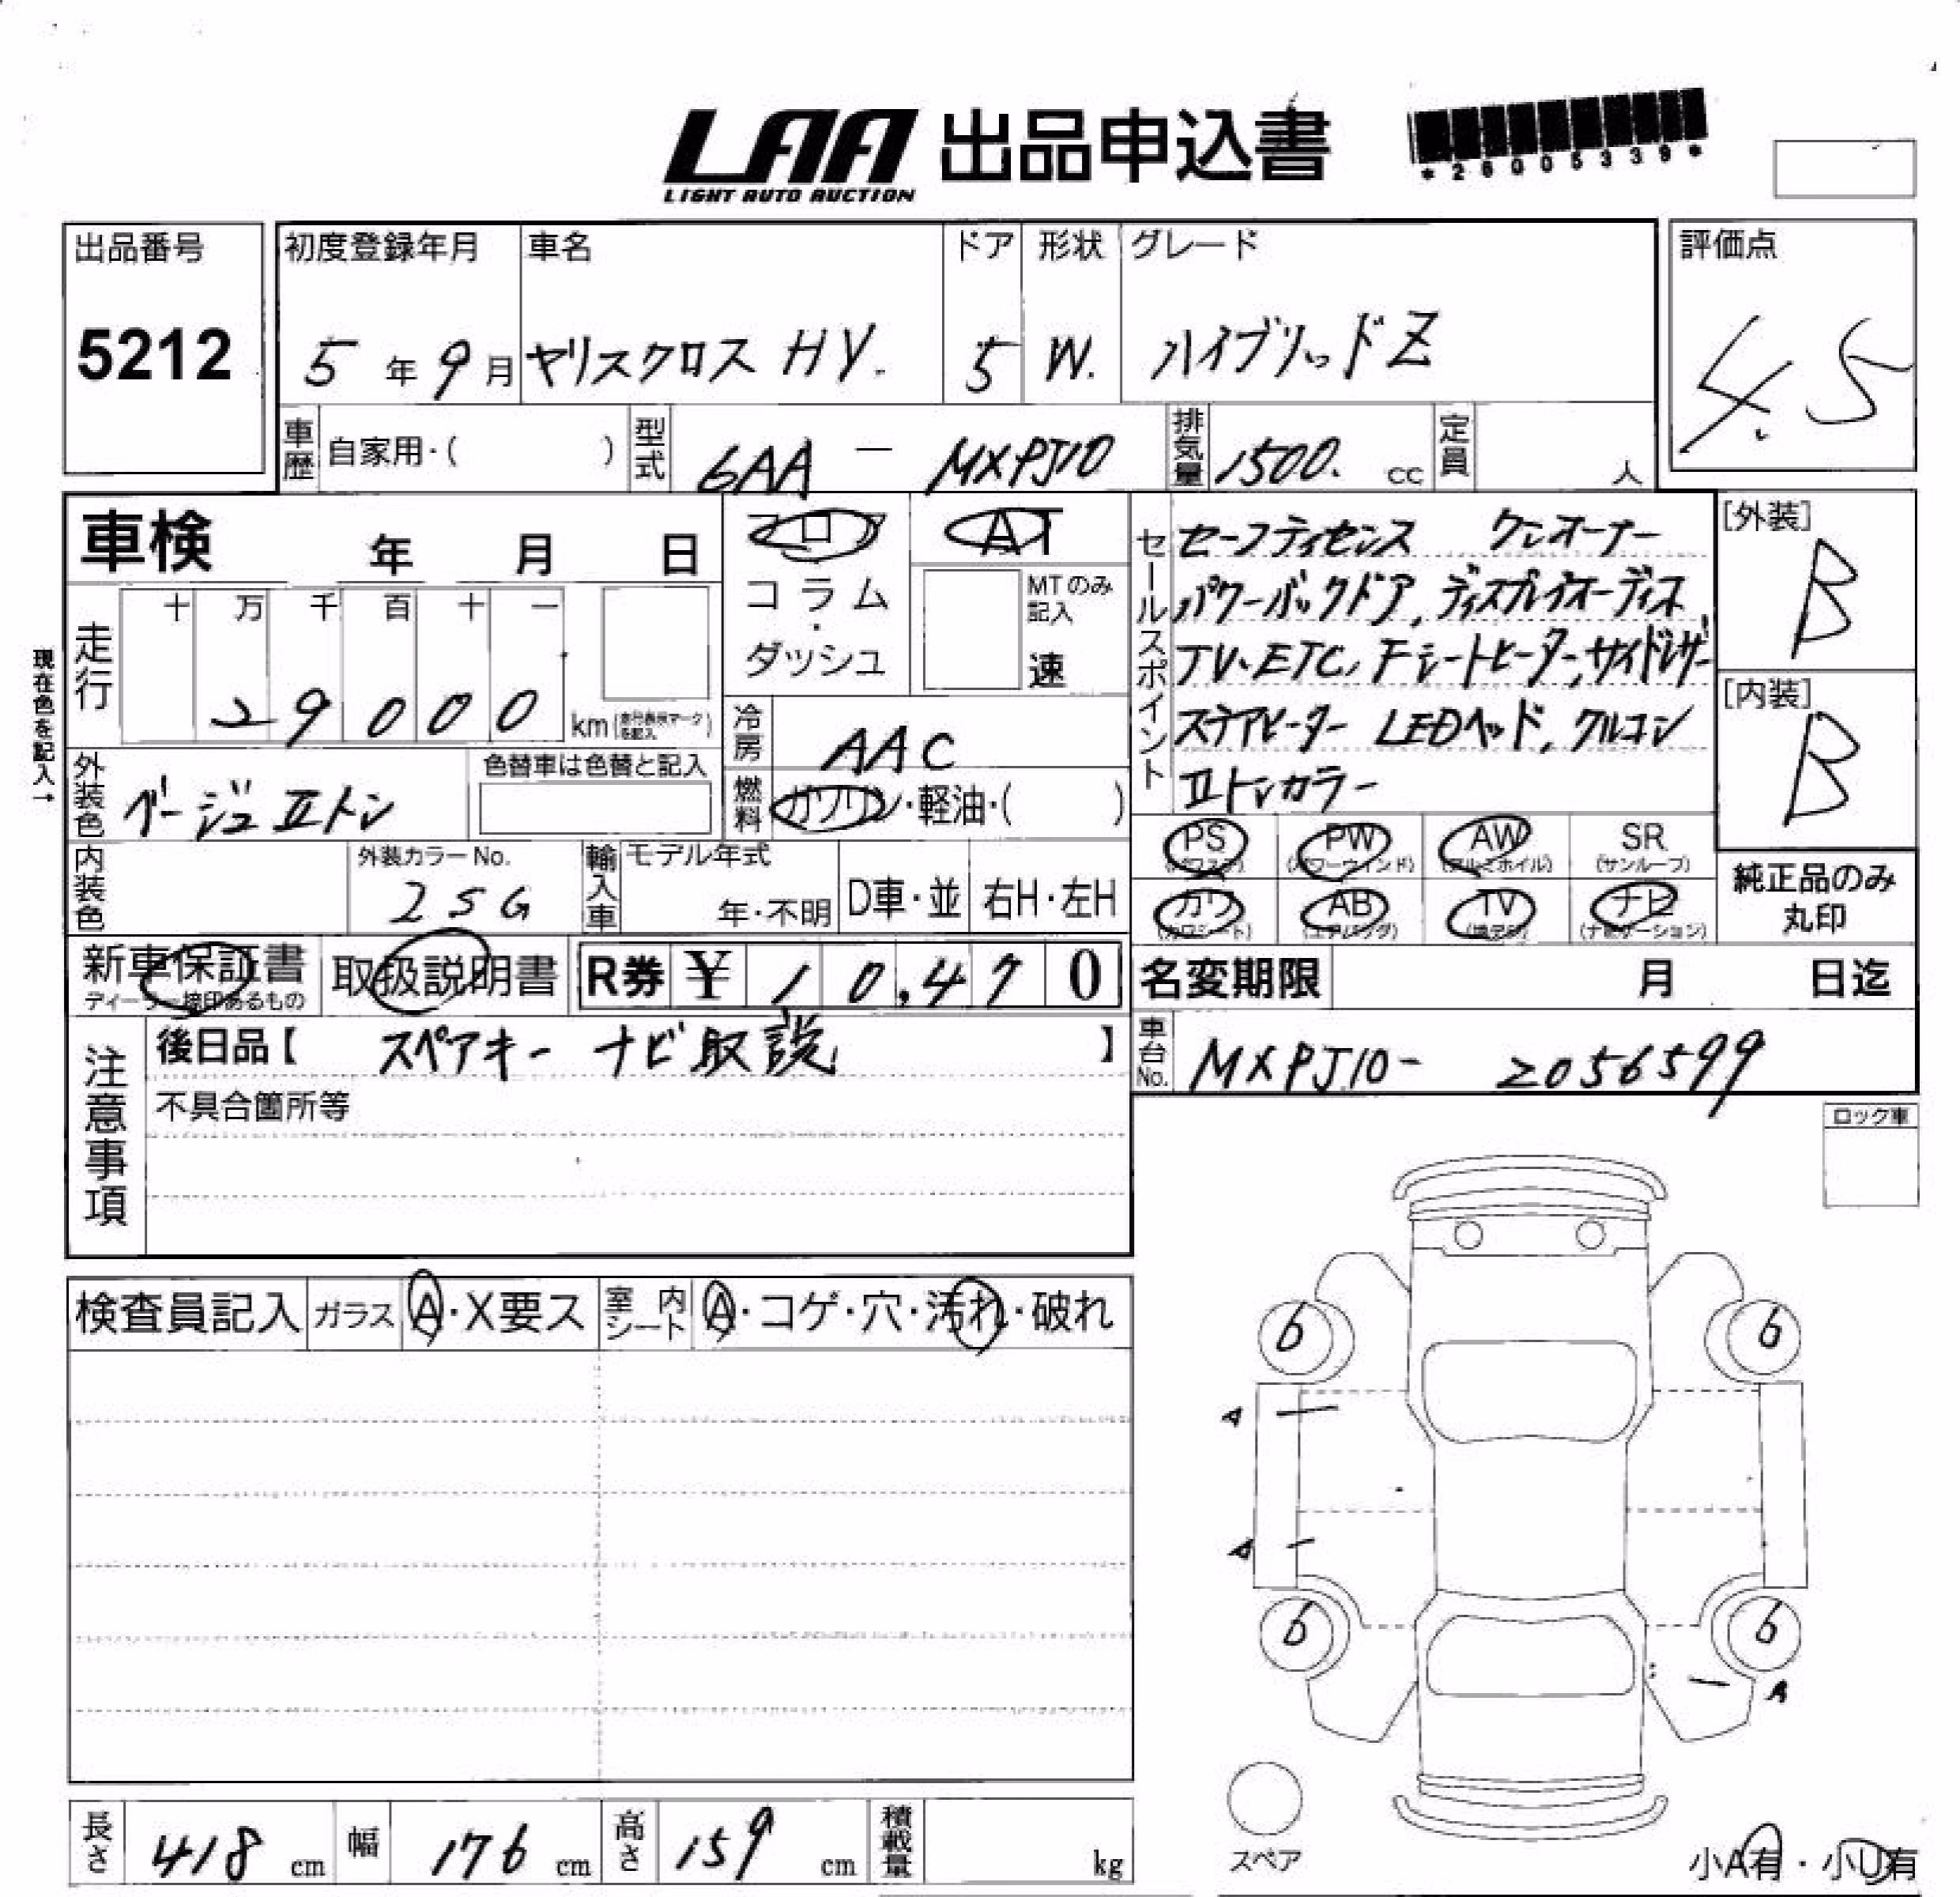 LAA 出品申込書
LIGHT AUTO AUCTION
*26005339*
出品番号
5212
初度登録年月 車名 ドア 形状 グレード
5年9月 ヤリスクロス HV. 5 W. ハイブリッドZ
評価点
4.5
車歴 自家用・( ) 型式 6AA — MXPJ10 排気量 1500. cc 定員 人
車検 年 月 日
フロア AT
コラム・ダッシュ
MTのみ記入
速
セールスポイント
セーフティセンス ワンオーナー
パワーバックドア、ディスプレイオーディオ
TV、ETC、Fシートヒーター、サイドレザー
ステアヒーター LEDヘッド、クルコン
IIトンカラー
[外装]
B
[内装]
B
現在色を記入→
走行 十 万 千 百 十 一
29000 km (走行表示マークを記入)
冷房 AAC
外装色 ベージュIIトン
色替車は色替と記入
燃料 ガソリン・軽油・( )
内装色
外装カラーNo.
2SG
輸入車 モデル年式
年・不明 D車・並 右H・左H
PS (パワステ) PW (パワーウィンド) AW (アルミホイル) SR (サンルーフ)
カワ (カワシート) AB (エアバッグ) TV (地デジ) ナビ (ナビゲーション)
純正品のみ
丸印
新車保証書
ディーラー捺印あるもの
取扱説明書 R券 ¥ 10,470
名変期限 月 日迄
注意事項
後日品【 スペアキー ナビ取説 】
不具合箇所等
車台No. MXPJ10- 2056599
ロック車
検査員記入 ガラス A・X要ス 室内シート A・コゲ・穴・汚れ・破れ
6 6
A
A
6 6
A
スペア
長さ 418 cm 幅 176 cm 高さ 159 cm 積載量 kg
小A有・小U有